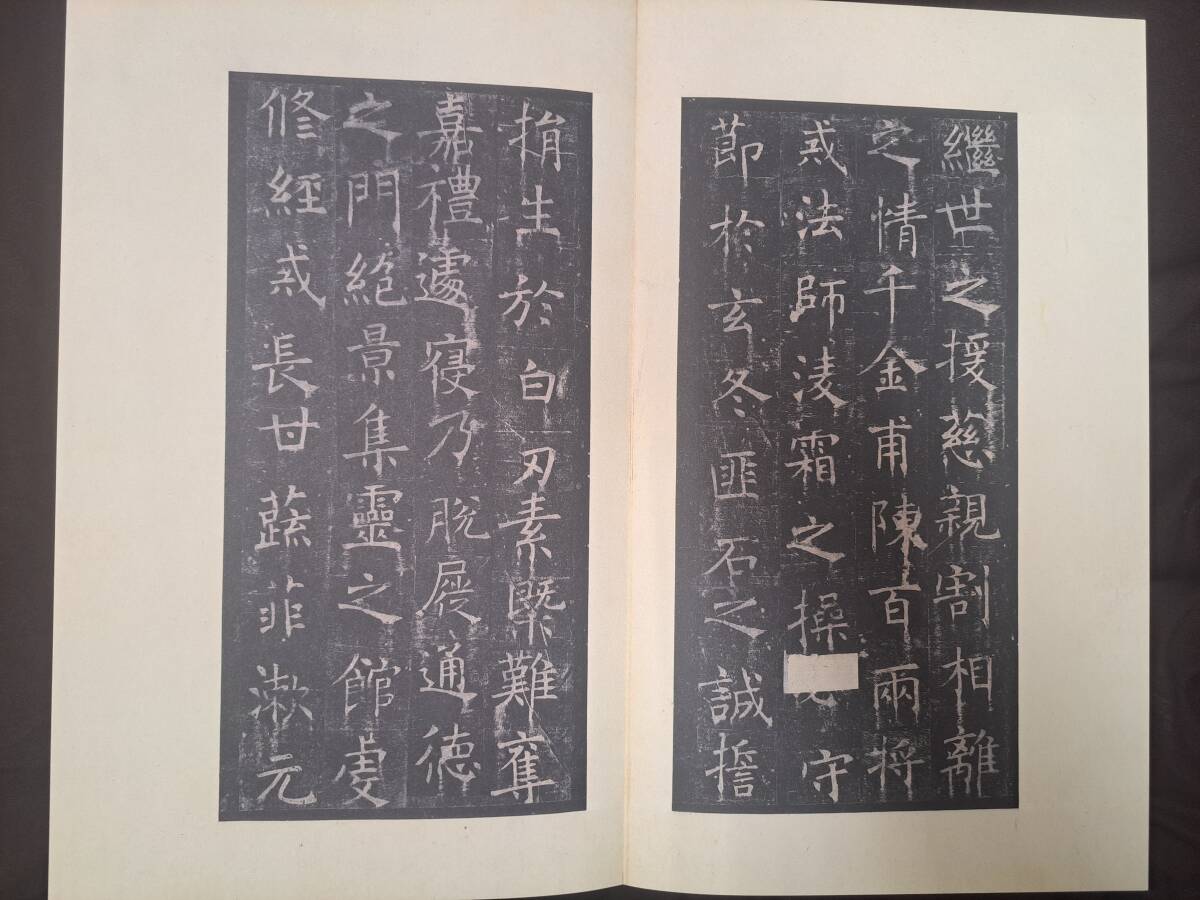 繼世之援慈親割相離
之情千金甫陳百兩將
戒法師淩霜之操必守
節於玄冬匪石之誠誓
捐生於白刃素槩難奪
嘉禮遽寑乃脫屣通德
之門絶景集靈之館虔
修經戒長甘蔬菲漱元